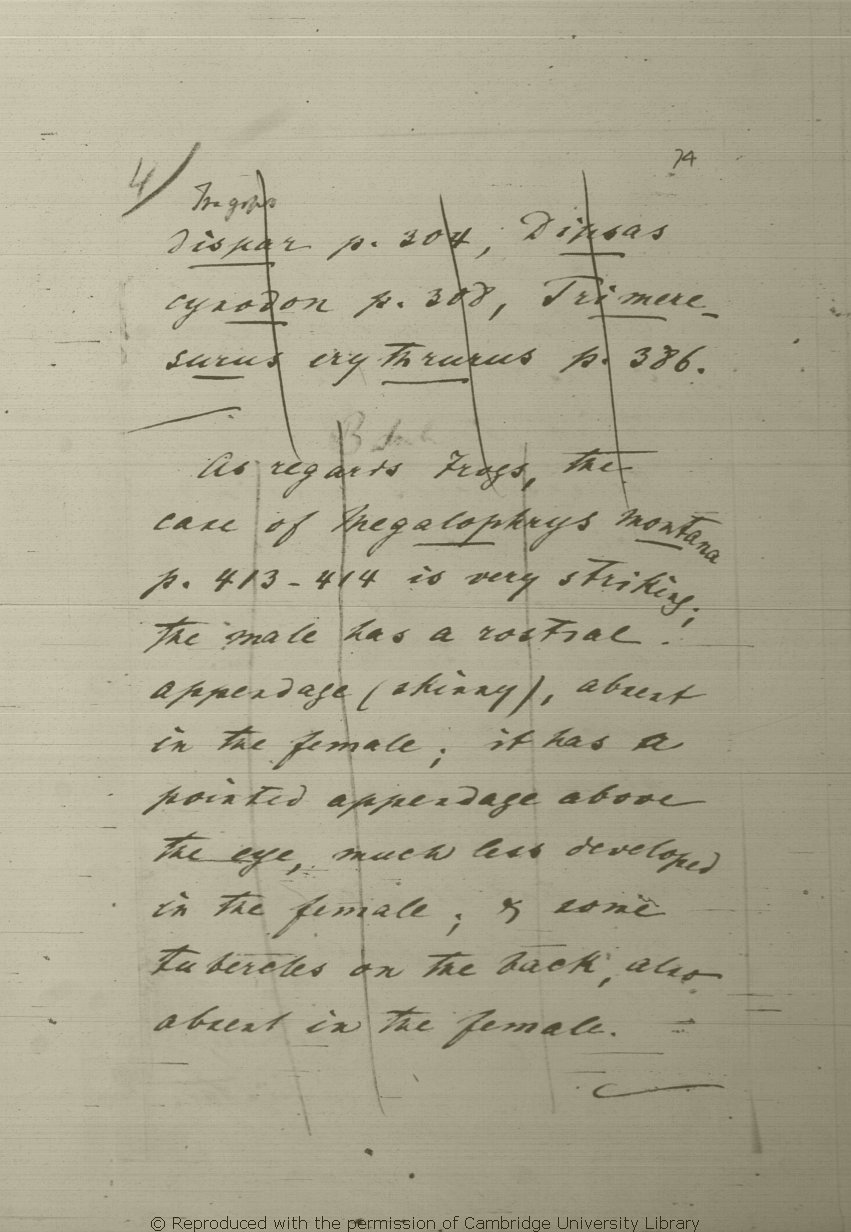 4
74
Tragops
dispar p. 304, Dipsas
cynodon p. 308, Trimere-
surus erythrurus p. 386.
As regards Frogs, the
case of Megalophrys montana
p. 413-414 is very striking;
the male has a rostral
appendage (skinny), absent
in the female; it has a
pointed appendage above
the eye, much less developed
in the female; & some
tubercles on the back, also
absent in the female.
© Reproduced with the permission of Cambridge University Library